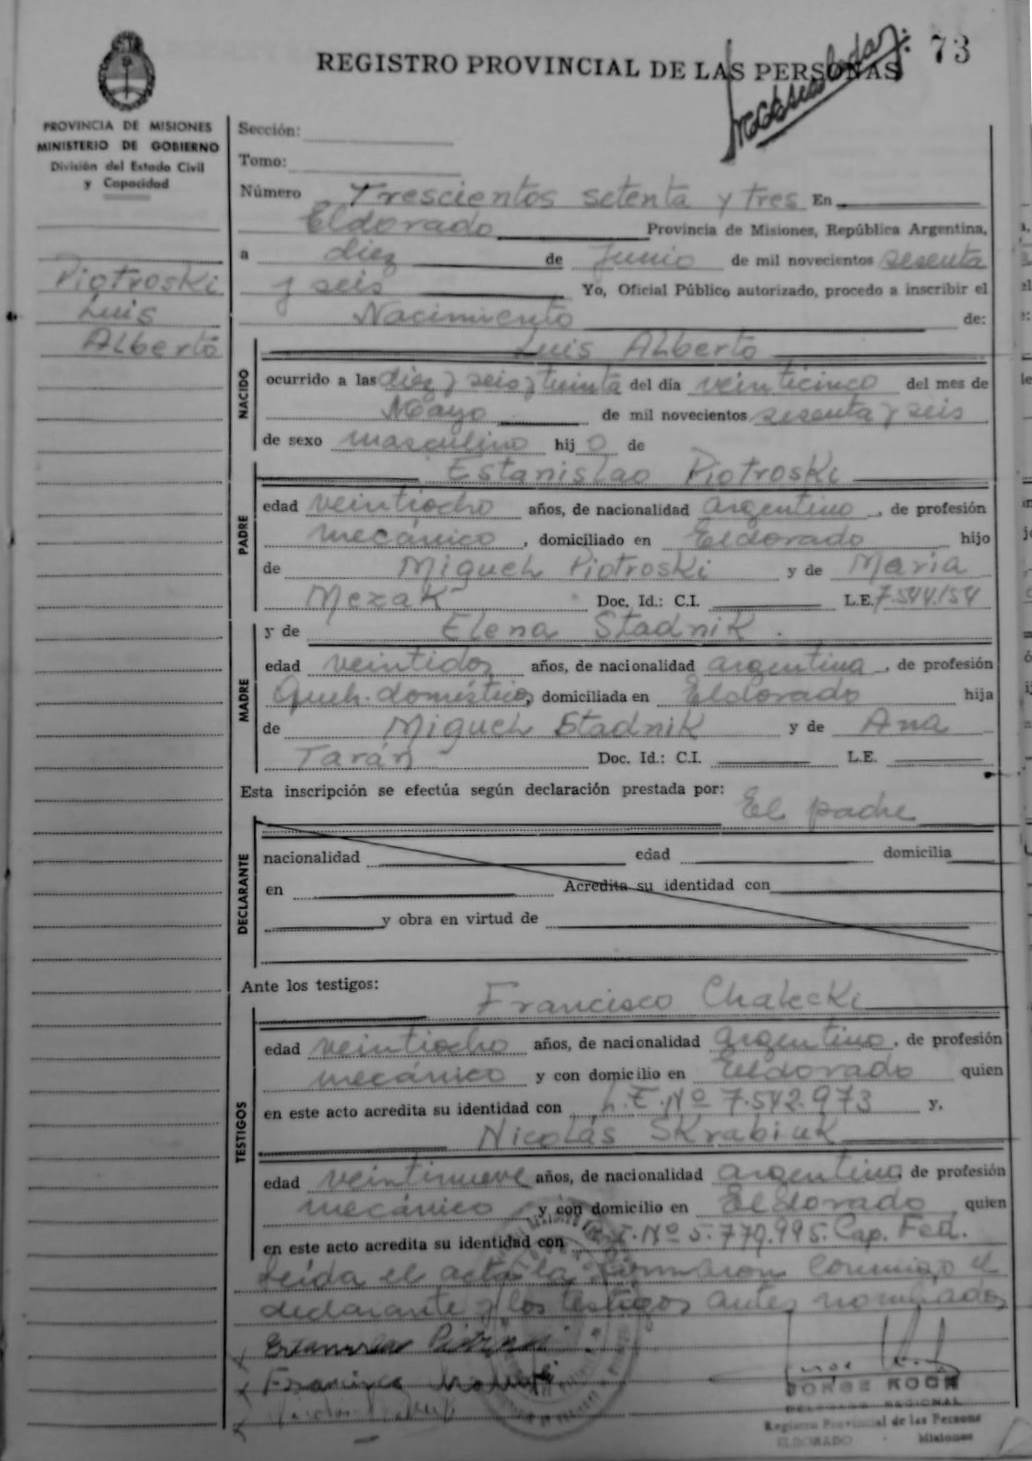 73
REGISTRO PROVINCIAL DE LAS PERSONAS
PROVINCIA DE MISIONES
MINISTERIO DE GOBIERNO
División del Estado Civil
y Capacidad
Piotroski
Luis
Alberto
Sección:
Tomo:
Número Trescientos setenta y tres En
Eldorado Provincia de Misiones, República Argentina,
a diez de Junio de mil novecientos sesenta
y seis Yo, Oficial Público autorizado, procedo a inscribir el
Nacimiento de:
NACIDO
Luis Alberto
ocurrido a las diez y seis y treinta del día veinticinco del mes de
Mayo de mil novecientos sesenta y seis
de sexo masculino hij o de
PADRE
Estanislao Piotroski
edad veintiocho años, de nacionalidad argentino, de profesión
mecánico, domiciliado en Eldorado hijo
de Miguel Piotroski y de María
Mezak Doc. Id.: C.I. L.E. 7.544.154
MADRE
y de Elena Stadnik.
edad veintidos años, de nacionalidad argentina, de profesión
Queh. domésticos, domiciliada en Eldorado hija
de Miguel Stadnik y de Ana
Tarán Doc. Id.: C.I. L.E.
Esta inscripción se efectúa según declaración prestada por: El padre
DECLARANTE
nacionalidad edad domicilia
en Acredita su identidad con
y obra en virtud de
Ante los testigos:
TESTIGOS
Francisco Chalecki
edad veintiocho años, de nacionalidad argentino, de profesión
mecánico y con domicilio en Eldorado quien
en este acto acredita su identidad con L.E. Nº 7.542.973 y,
Nicolás Skrabiuk
edad veintinueve años, de nacionalidad argentina, de profesión
mecánico y con domicilio en Eldorado quien
en este acto acredita su identidad con Nº 5.779.995. Cap. Fed.
Leída el acta la firmaron conmigo el
declarante y los testigos antes nombrados
JORGE KOCH
DELEGADO REGIONAL
Registro Provincial de las Persons
ELDORADO Misiones